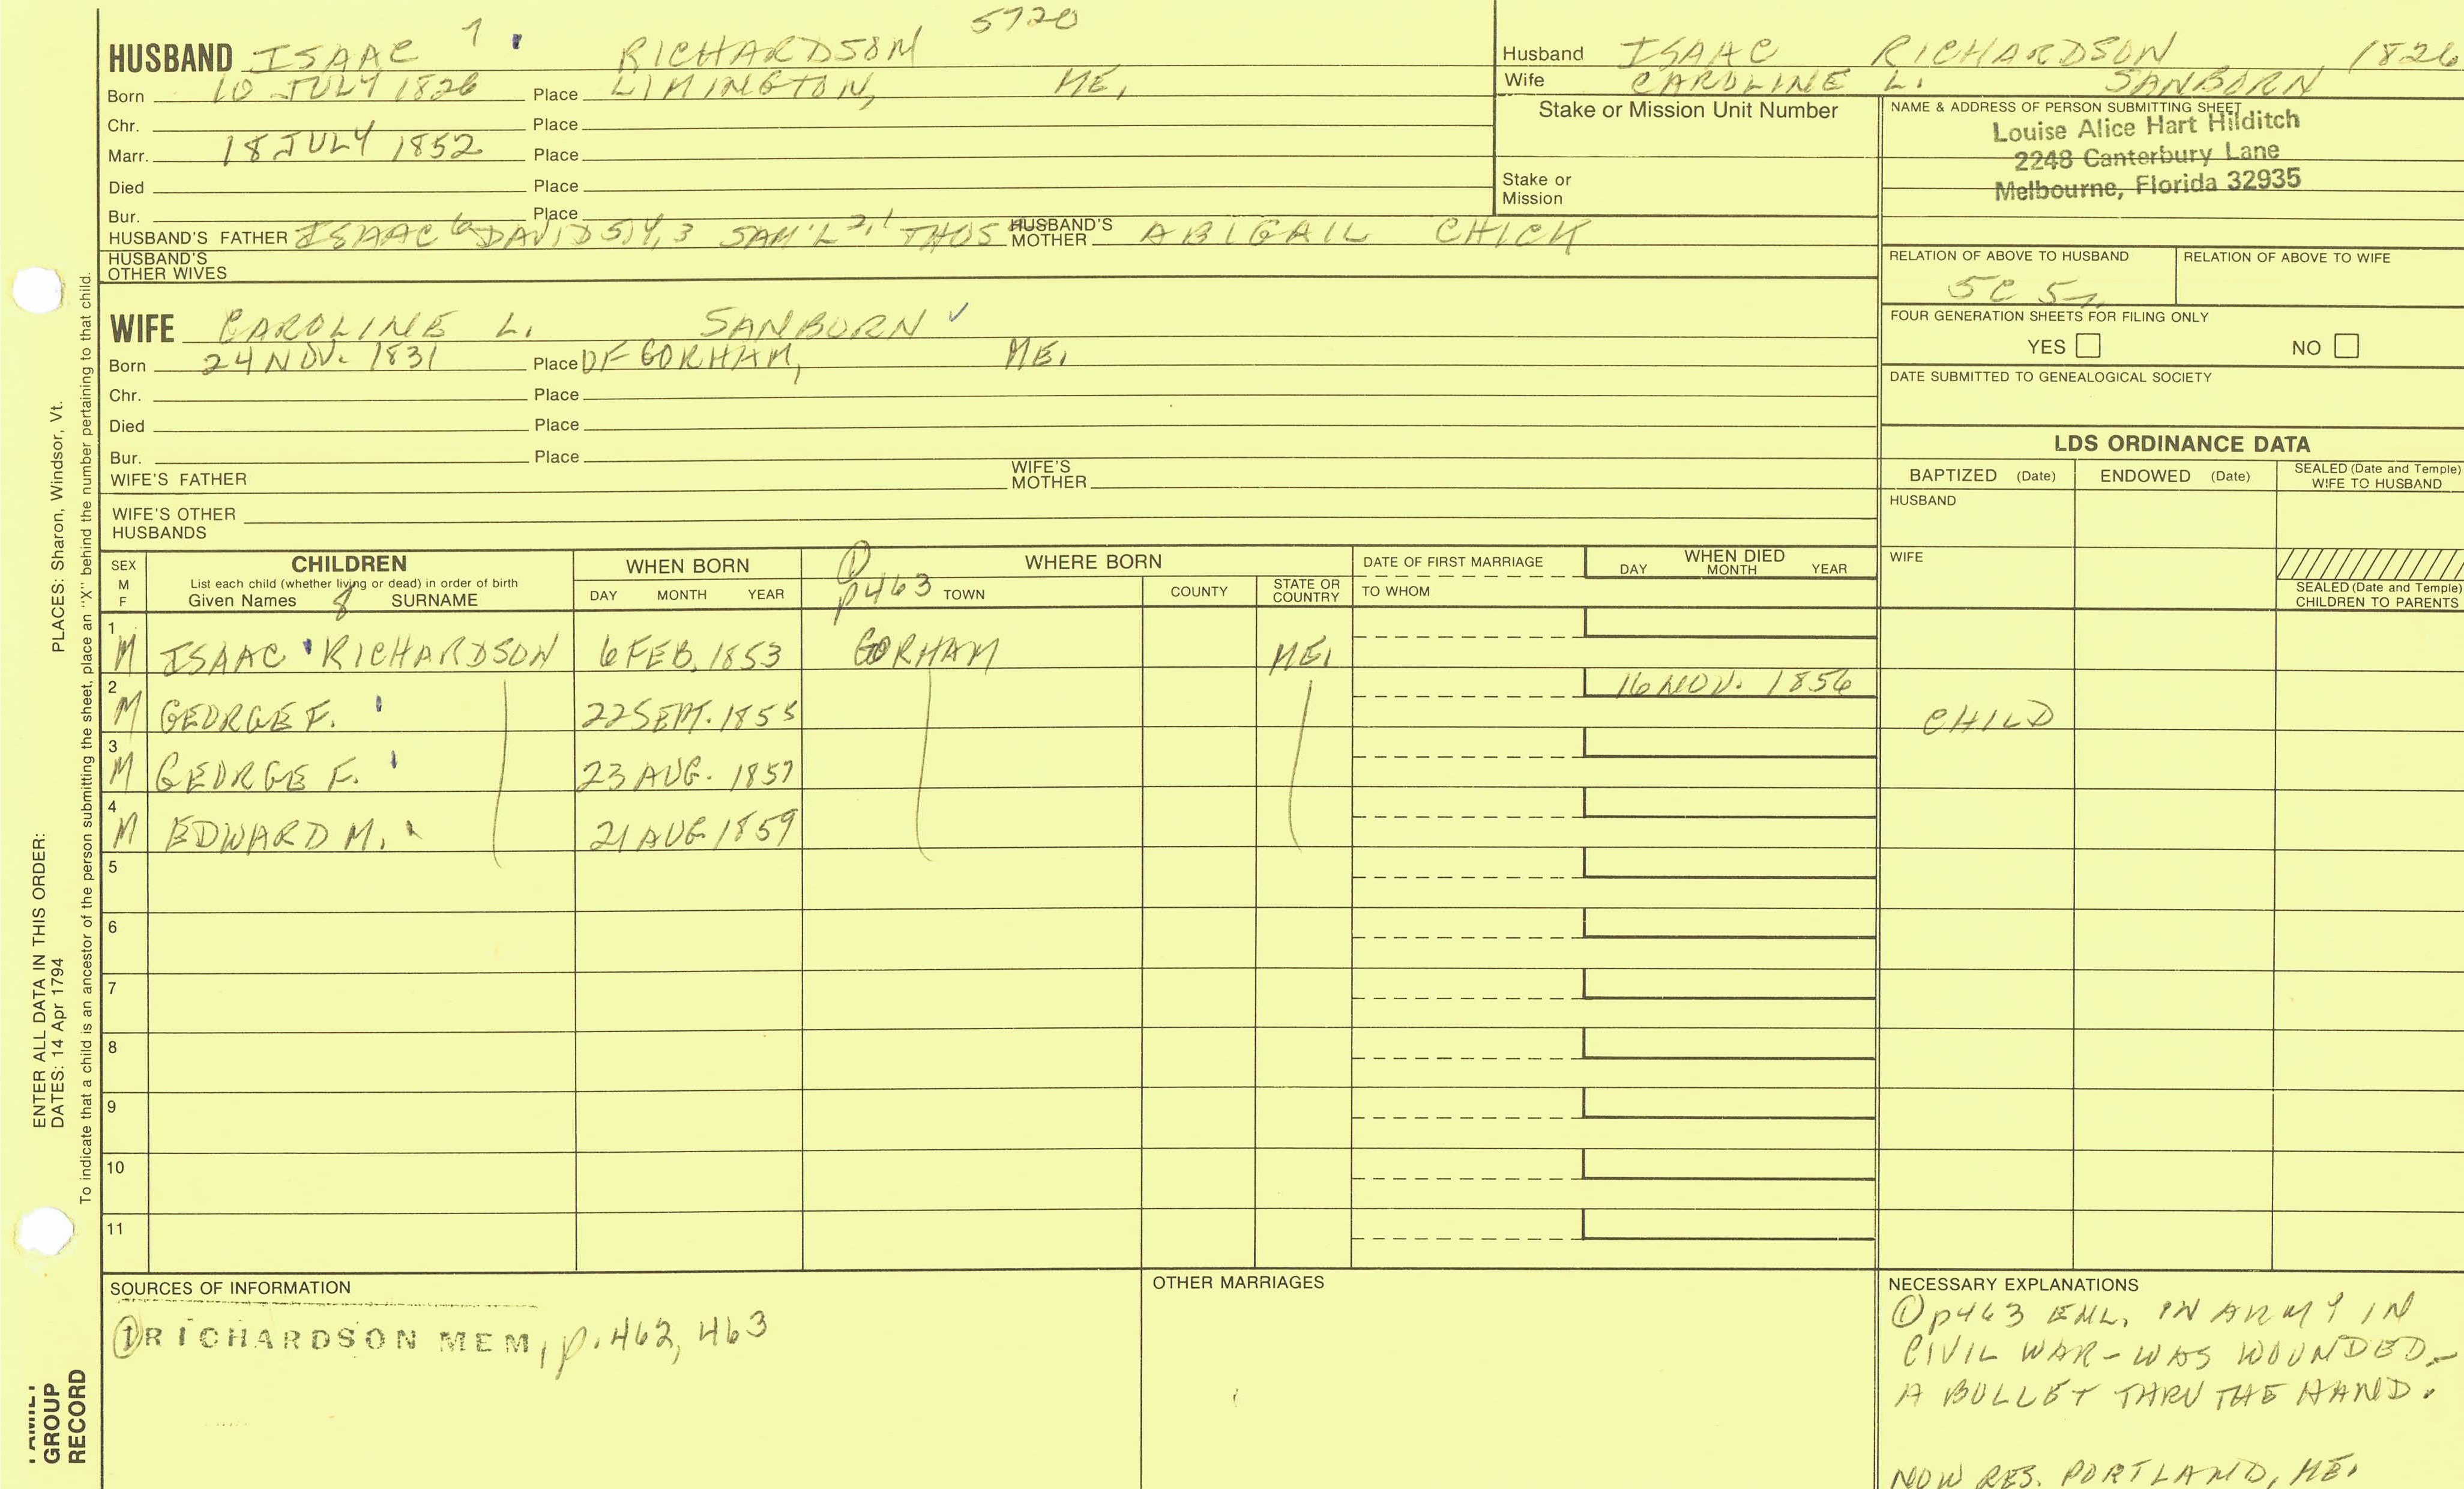 5720
HUSBAND ISAAC 7 RICHARDSON
Born 10 JULY 1826 Place LIMINGTON, ME.
Chr. Place
Marr. 18 JULY 1852 Place
Died Place
Bur. Place
HUSBAND'S FATHER ISAAC 6 DAVID 5,4,3 SAM'L 2,1 THOS HUSBAND'S MOTHER ABIGAIL CHICK
HUSBAND'S OTHER WIVES
WIFE CAROLINE L. SANBORN ✓
Born 24 NOV. 1831 Place OF GORHAM, ME.
Chr. Place
Died Place
Bur. Place
WIFE'S FATHER WIFE'S MOTHER
WIFE'S OTHER HUSBANDS
Husband ISAAC RICHARDSON 1826
Wife CAROLINE L. SANBORN
Stake or Mission Unit Number
Stake or Mission
NAME & ADDRESS OF PERSON SUBMITTING SHEET
Louise Alice Hart Hilditch
2248 Canterbury Lane
Melbourne, Florida 32935
RELATION OF ABOVE TO HUSBAND RELATION OF ABOVE TO WIFE
5C 5
FOUR GENERATION SHEETS FOR FILING ONLY
YES NO
DATE SUBMITTED TO GENEALOGICAL SOCIETY
LDS ORDINANCE DATA
BAPTIZED (Date) ENDOWED (Date) SEALED (Date and Temple) WIFE TO HUSBAND
HUSBAND
WIFE
SEALED (Date and Temple) CHILDREN TO PARENTS
SEX M F
CHILDREN
List each child (whether living or dead) in order of birth
Given Names 8 SURNAME
WHEN BORN
DAY MONTH YEAR
① p463
WHERE BORN
TOWN COUNTY STATE OR COUNTRY
DATE OF FIRST MARRIAGE
TO WHOM
WHEN DIED
DAY MONTH YEAR
1 M ISAAC RICHARDSON 6 FEB. 1853 GORHAM ME.
2 M GEORGE F. 22 SEPT. 1855 16 NOV. 1856 CHILD
3 M GEORGE F. 23 AUG. 1857
4 M EDWARD M. 21 AUG 1859
5
6
7
8
9
10
11
SOURCES OF INFORMATION
① RICHARDSON MEM, p. 462, 463
OTHER MARRIAGES
NECESSARY EXPLANATIONS
① p463 ENL. IN ARMY IN
CIVIL WAR - WAS WOUNDED -
A BULLET THRU THE HAND.
NOW RES. PORTLAND, ME.
ENTER ALL DATA IN THIS ORDER:
DATES: 14 Apr 1794 PLACES: Sharon, Windsor, Vt.
To indicate that a child is an ancestor of the person submitting the sheet, place an "X" behind the number pertaining to that child.
FAMILY
GROUP
RECORD